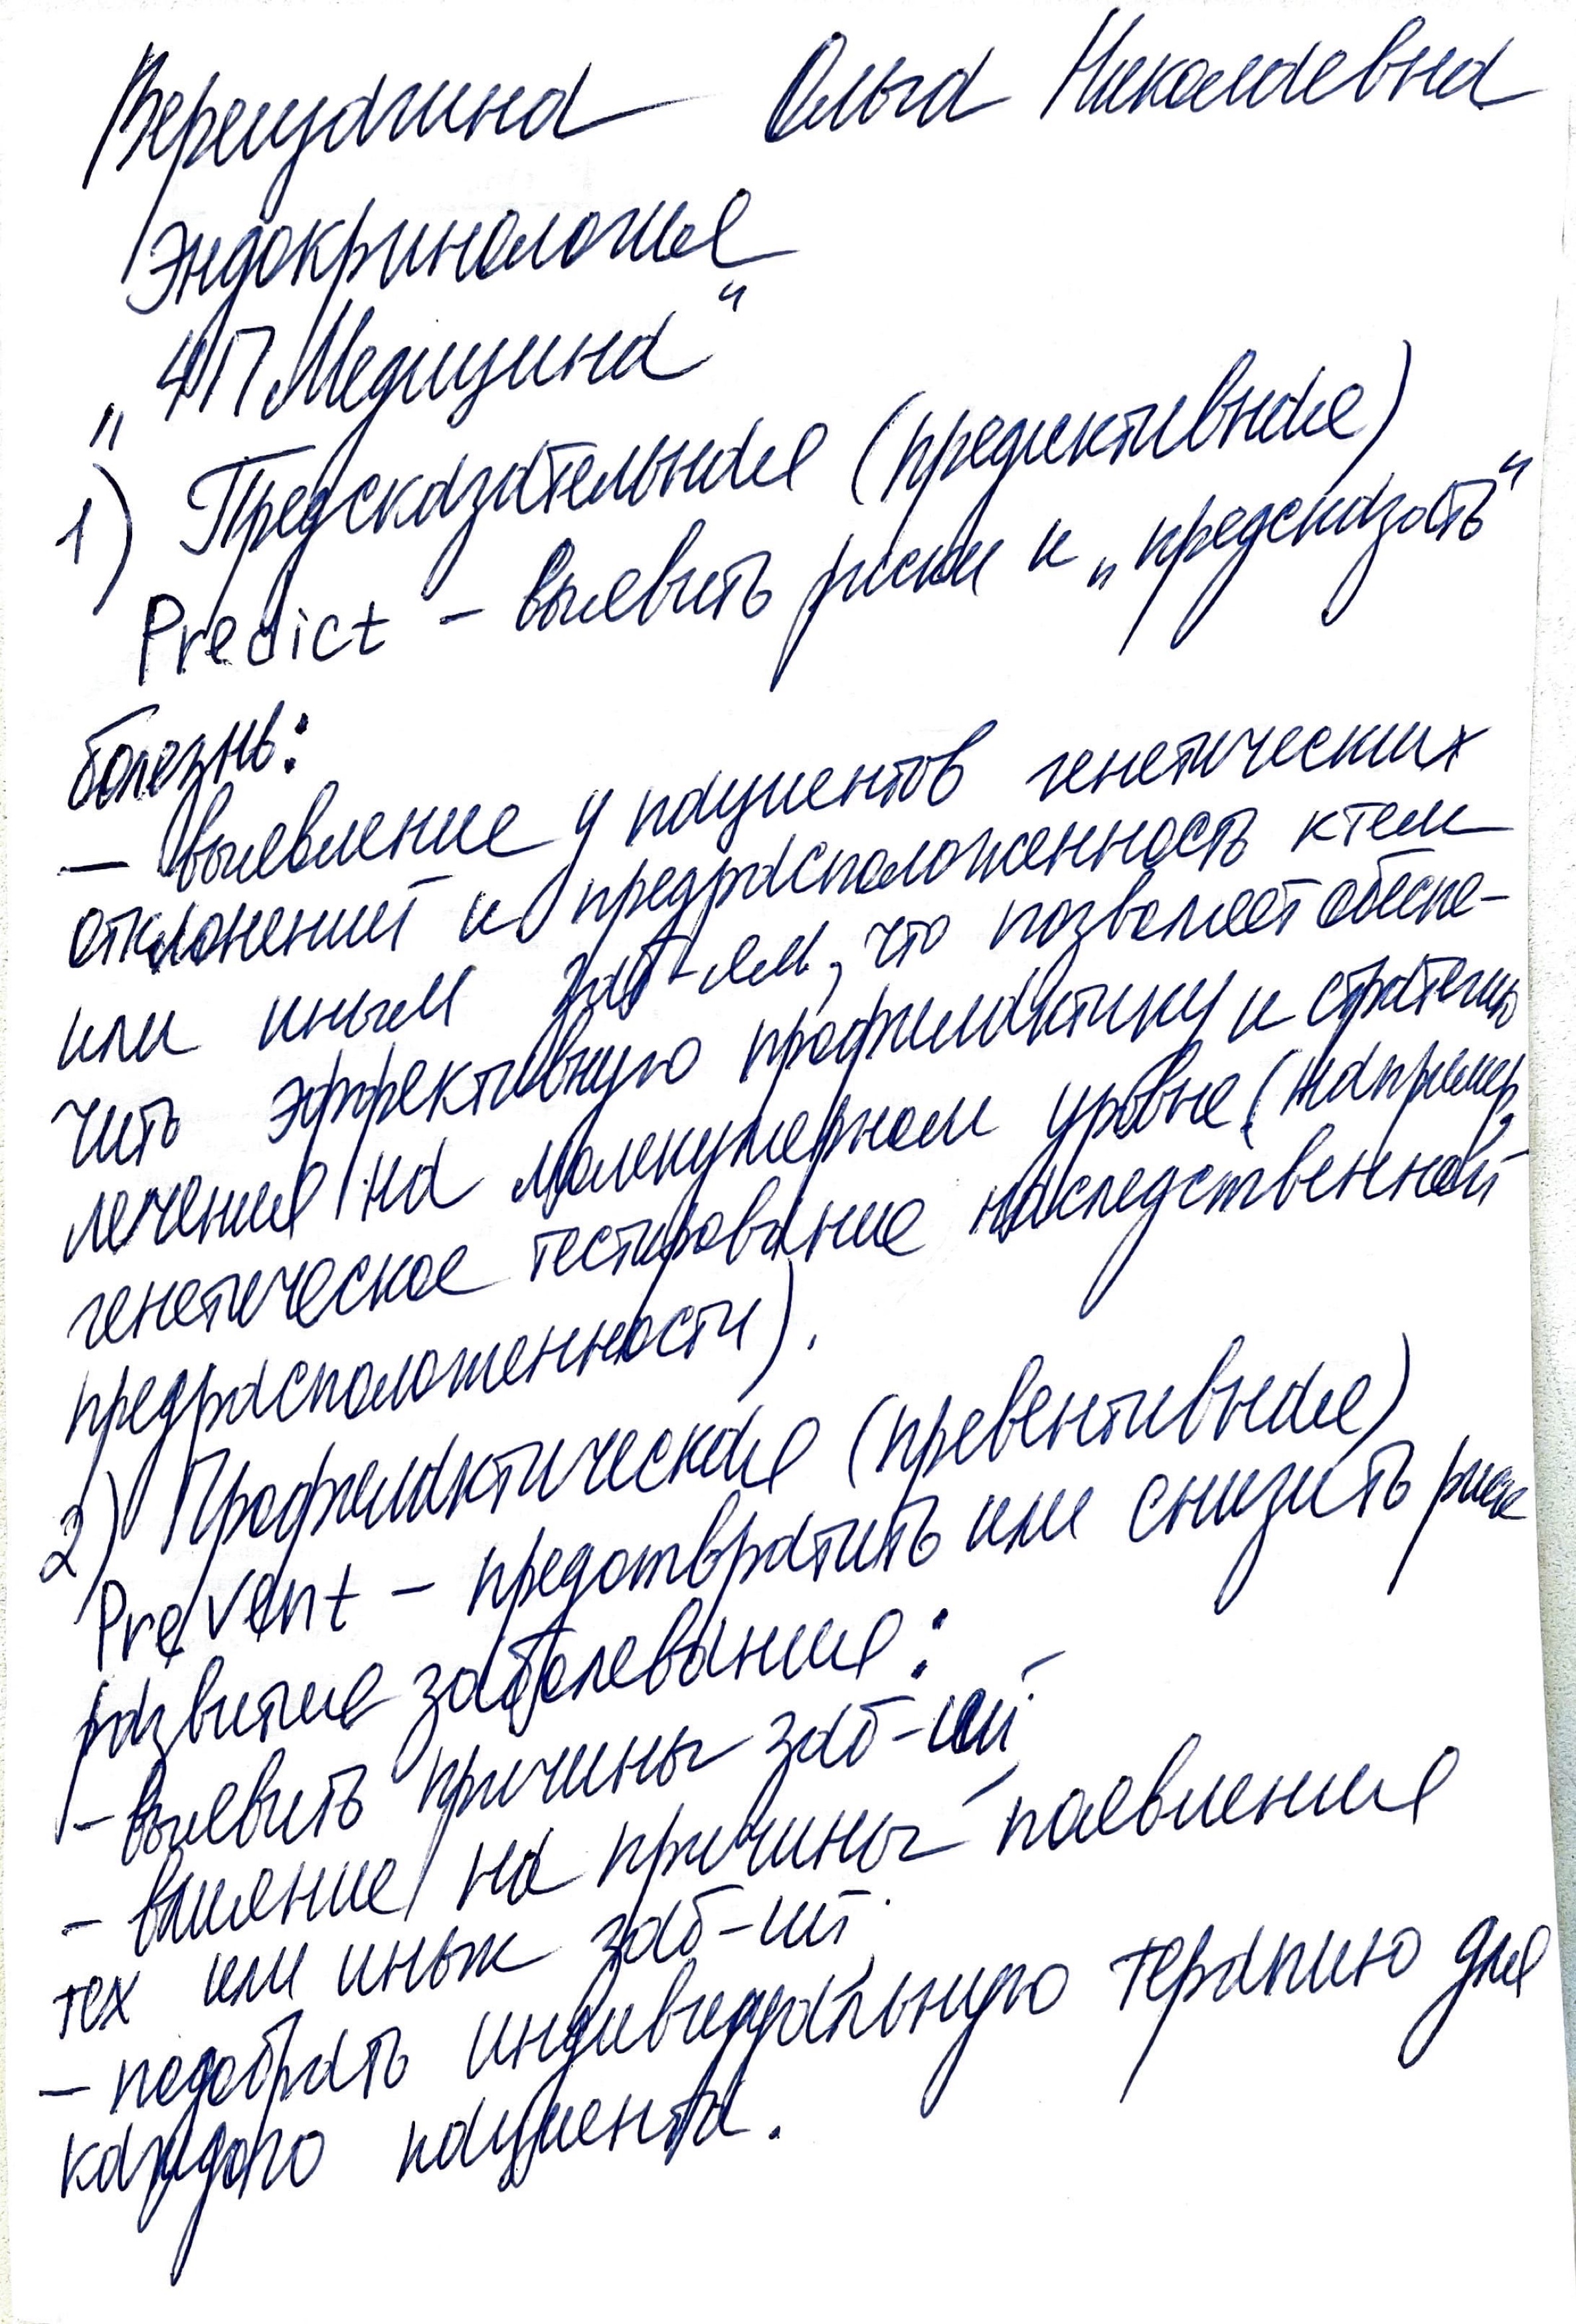 Верещагина Ольга Николаевна
Эндокринология
"4П Медицина"
1) Предсказательная (предиктивная)
Predict - выявить риски и "предсказать"
болезнь:
- выявление у пациентов генетических
отклонений и предрасположенность к тем
или иным заб-ям, что позволяет обеспе-
чить эффективную профилактику и стратегию
лечения на молекулярном уровне (например,
генетическое тестирование наследственной
предрасположенности).
2) Профилактическая (превентивная)
Prevent - предотвратить или снизить риск
развития заболевания:
- выявить причины заб-ий
- влияние на причины появления
тех или иных заб-ий
- подобрать индивидуальную терапию для
каждого пациента.